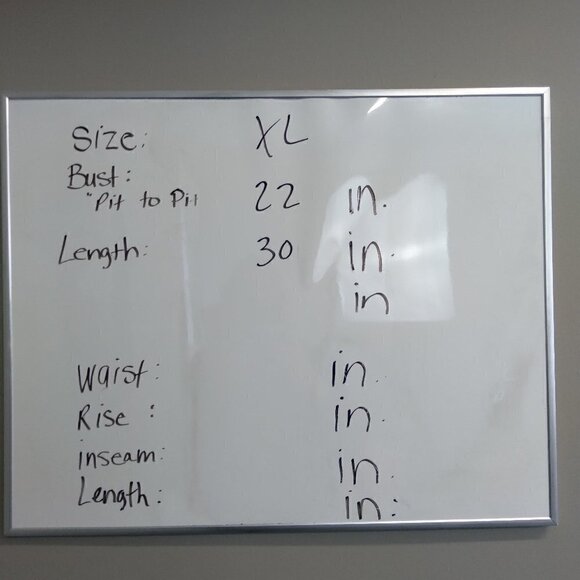 Size: XL
Bust:
"Pit to Pit 22 in.
Length: 30 in.
in
Waist: in.
Rise: in.
inseam: in.
Length: in.